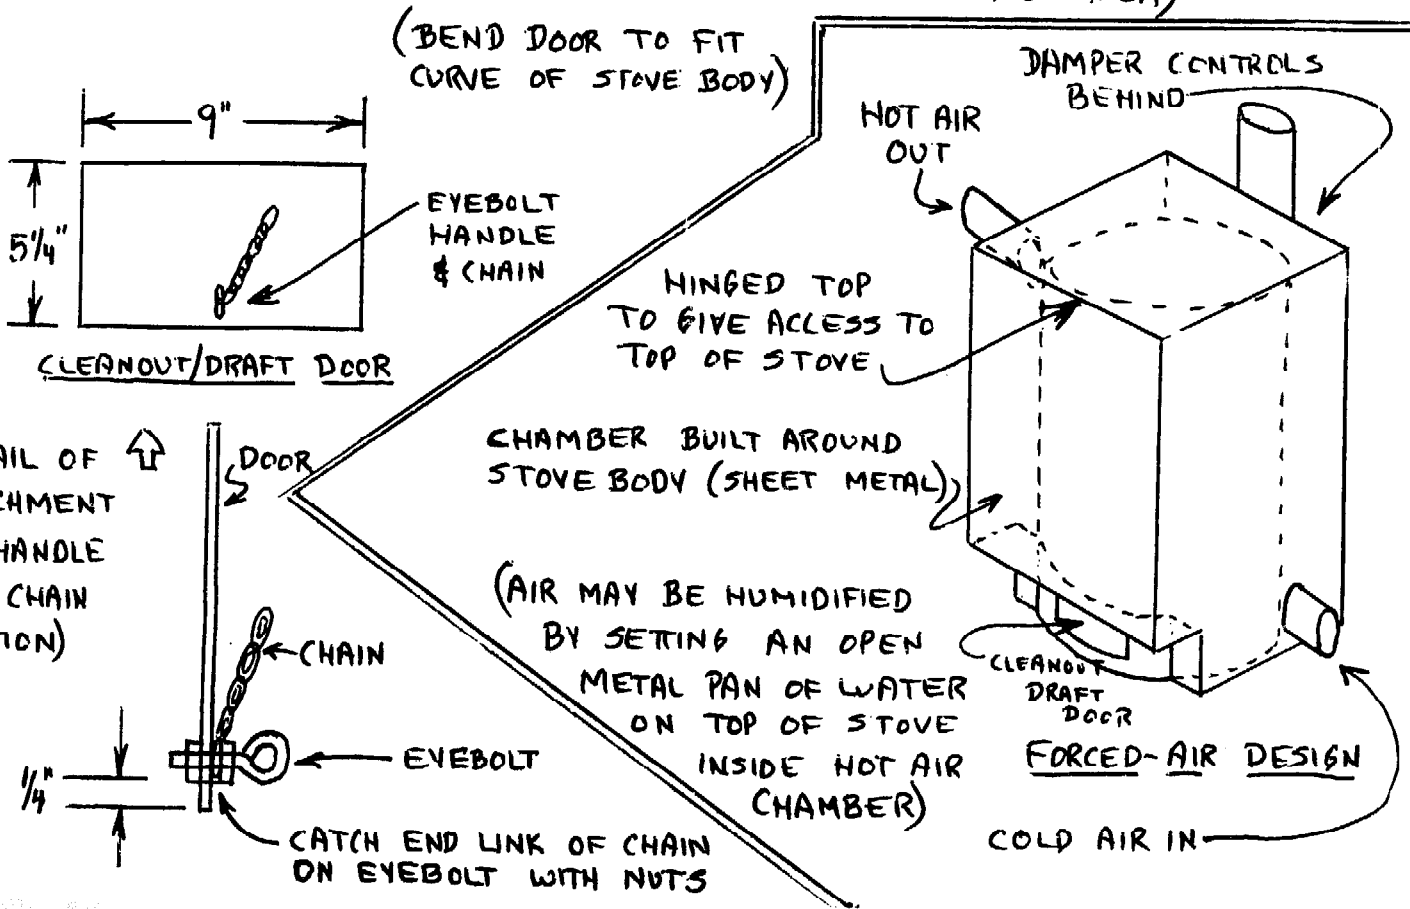 (BEND DOOR TO FIT
CURVE OF STOVE BODY)
9"
5¼"
EYEBOLT
HANDLE
& CHAIN
CLEANOUT/DRAFT DOOR
OF
DOOR
HANDLE
CHAIN
CHAIN
EYEBOLT
¼"
CATCH END LINK OF CHAIN
ON EYEBOLT WITH NUTS
DAMPER CONTROLS
BEHIND
HOT AIR
OUT
HINGED TOP
TO GIVE ACCESS TO
TOP OF STOVE
CHAMBER BUILT AROUND
STOVE BODY (SHEET METAL)
(AIR MAY BE HUMIDIFIED
BY SETTING AN OPEN
METAL PAN OF WATER
ON TOP OF STOVE
INSIDE HOT AIR
CHAMBER)
CLEANOUT
DRAFT
DOOR
FORCED-AIR DESIGN
COLD AIR IN